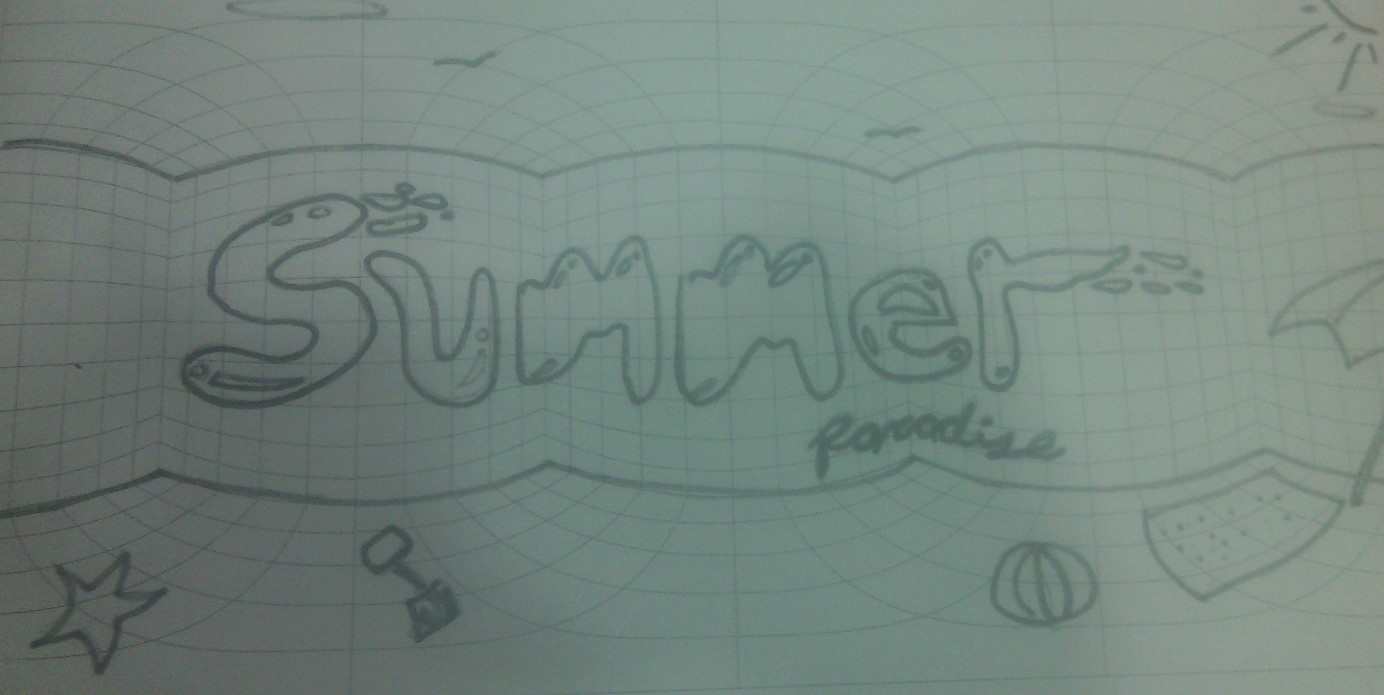 Summer
paradise